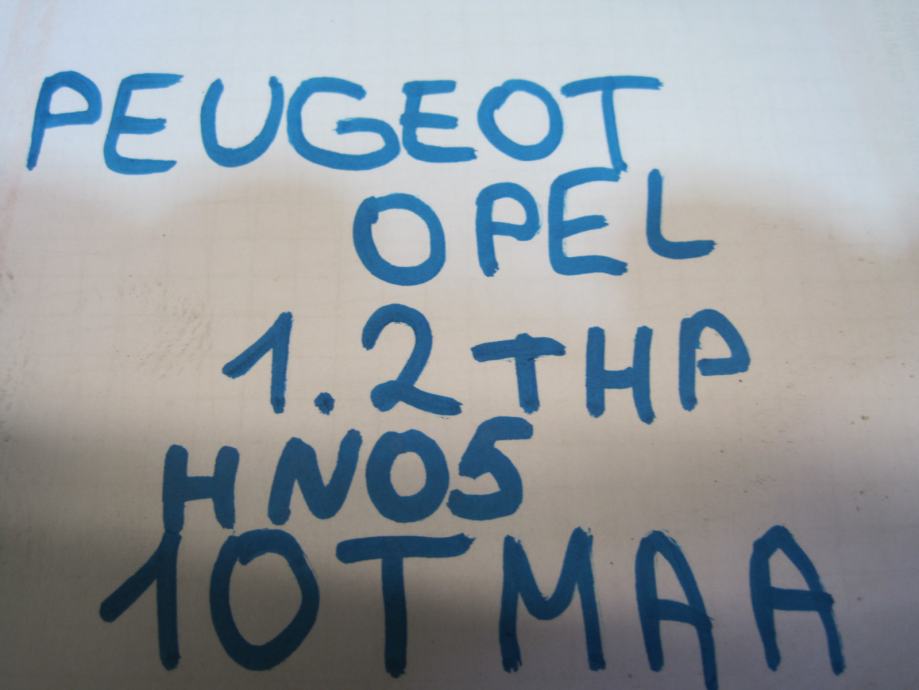 PEUGEOT
OPEL
1.2 THP
HN05
10TMAA